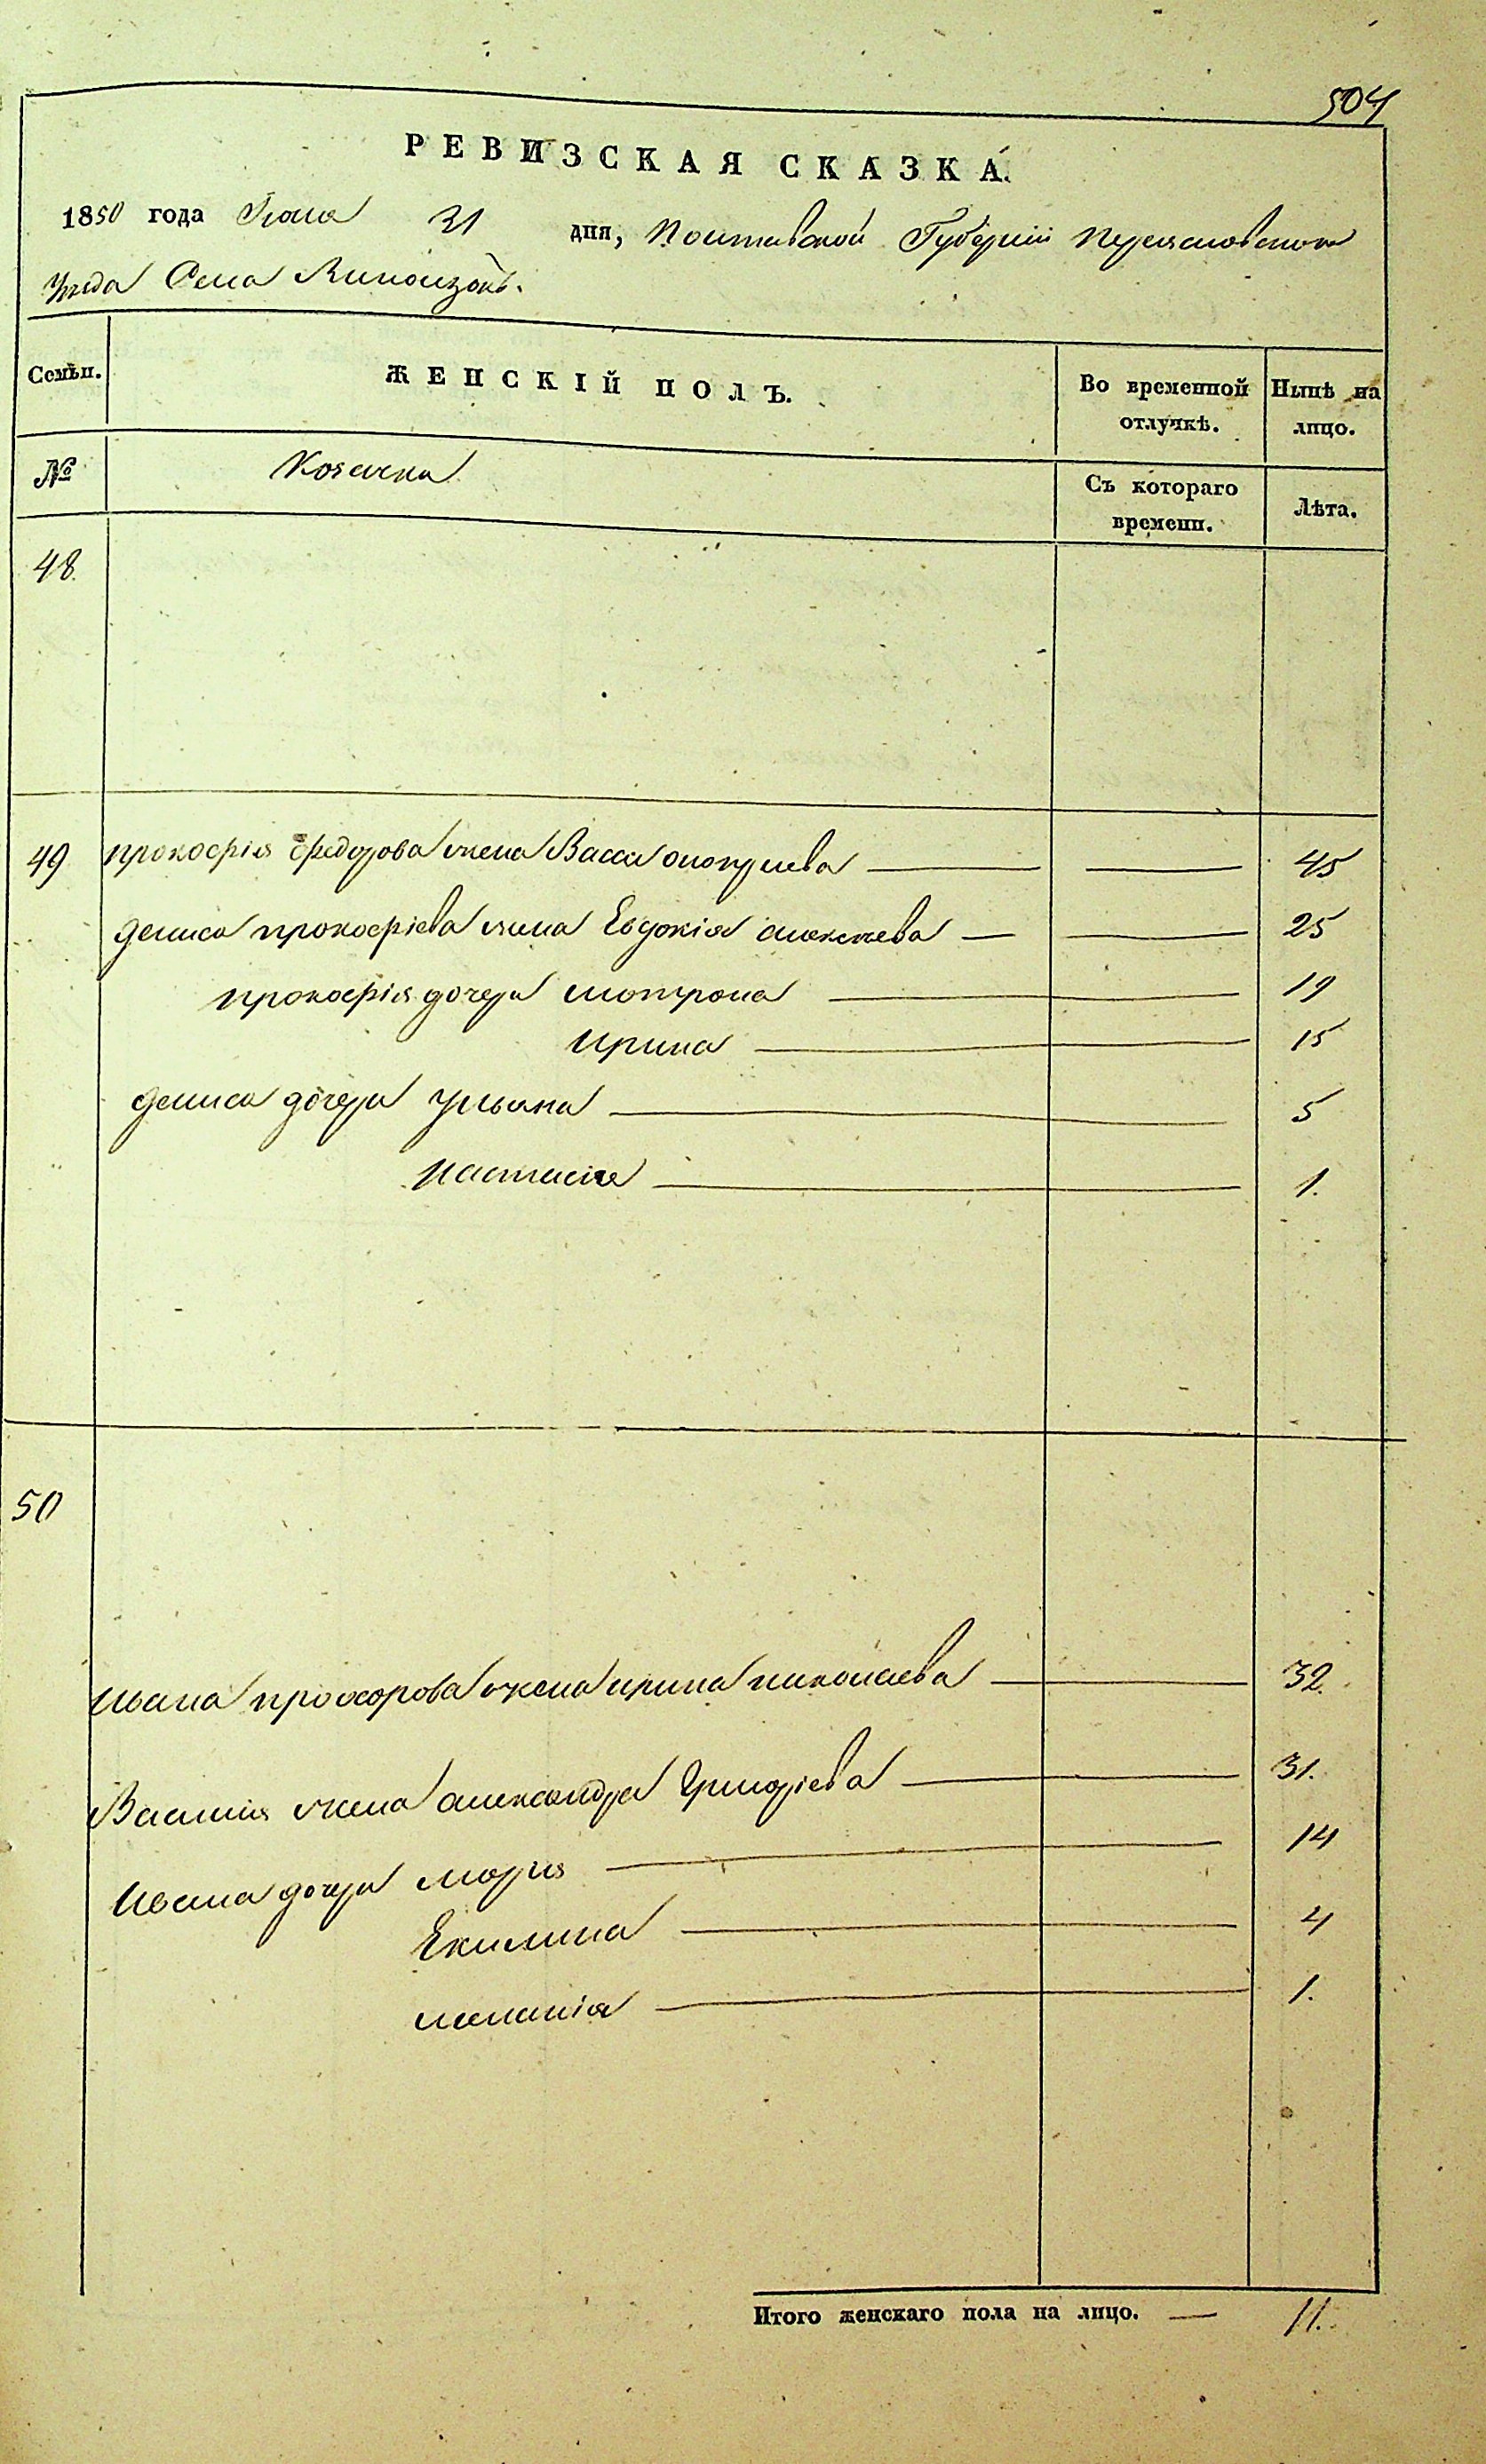 504
РЕВИЗСКАЯ СКАЗКА.
1850 года 31 дня, Полтавской Губерніи Переяславскаго
уезда Села
Семьи. ЖЕНСКІЙ ПОЛЪ. Во временной отлучкѣ. Нынѣ на лицо.
№ Козачки Съ котораго времени. Лѣта.
48.
49 прокофія Федорова жена Васса оноприева — — 45
дениса прокофіева жена Евдокія алексеева — — 25
прокофія дочери мотрона — 19
ирина — 15
дениса дочери ульяна — 5
настасія — 1.
50
ивана прохорова жена ирина николаева — 32.
Василия жена александра Григоріева — 31.
Ивана дочери мария — 14
Екилина — 4
меланія — 1.
Итого женскаго пола на лицо. — 11.